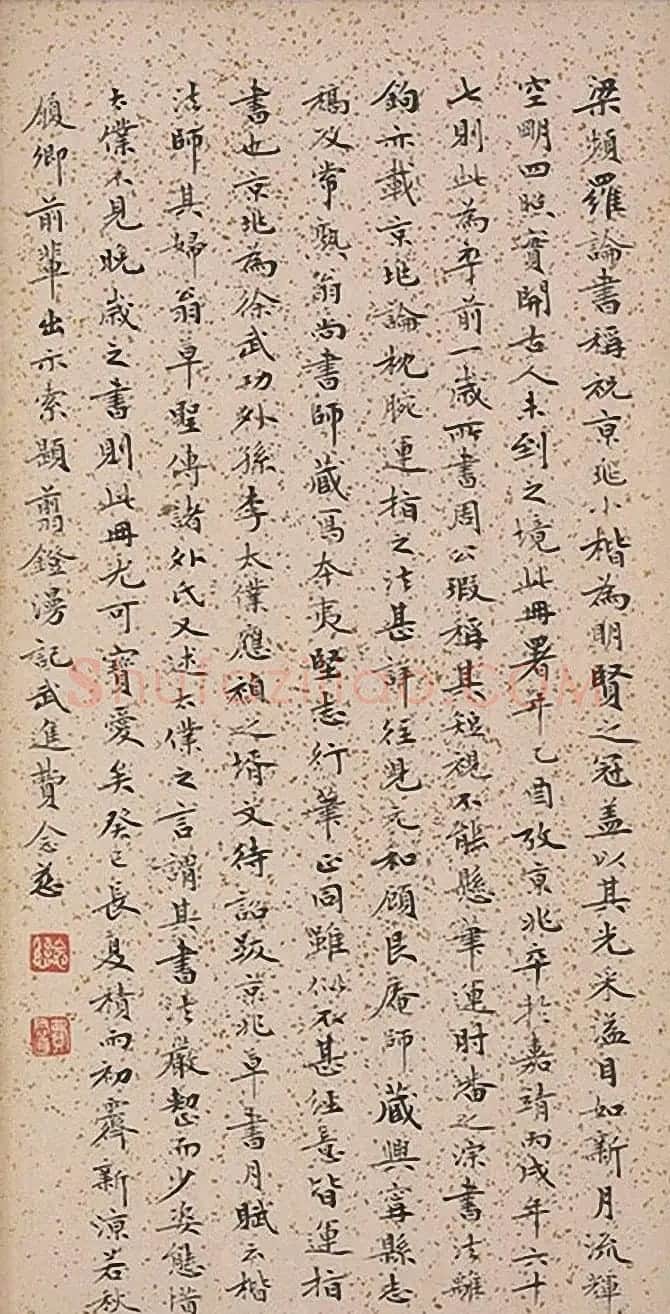 梁頻羅論書稱祝京兆小楷為明賢之冠蓋以其光采溢目如新月流輝
空明四照實開古人未到之境此冊署年乙酉攷京兆卒於嘉靖丙戌年六十
七則此為卒前一歲所書周公瑕稱其短視不能懸筆運肘潘之淙書法離
鉤亦載京兆論枕腕運指之法甚詳往見元和顧艮庵師藏興寧縣志
稿及常熟翁尚書師藏寫本夷堅志行筆正同雖似不甚經意皆運指
書也京兆為徐武功外孫李太僕應禎之壻文待詔跋京兆草書月賦云楷
法師其婦翁草聖傳諸外氏又述太僕之言謂其書法嚴整而少姿態惜
太僕不見晚歲之書則此冊尤可寶愛矣癸巳長夏積雨初霽新涼若秋
頤卿前輩出示索題翦鐙漫記武進費念慈
Shufaziliao.COM